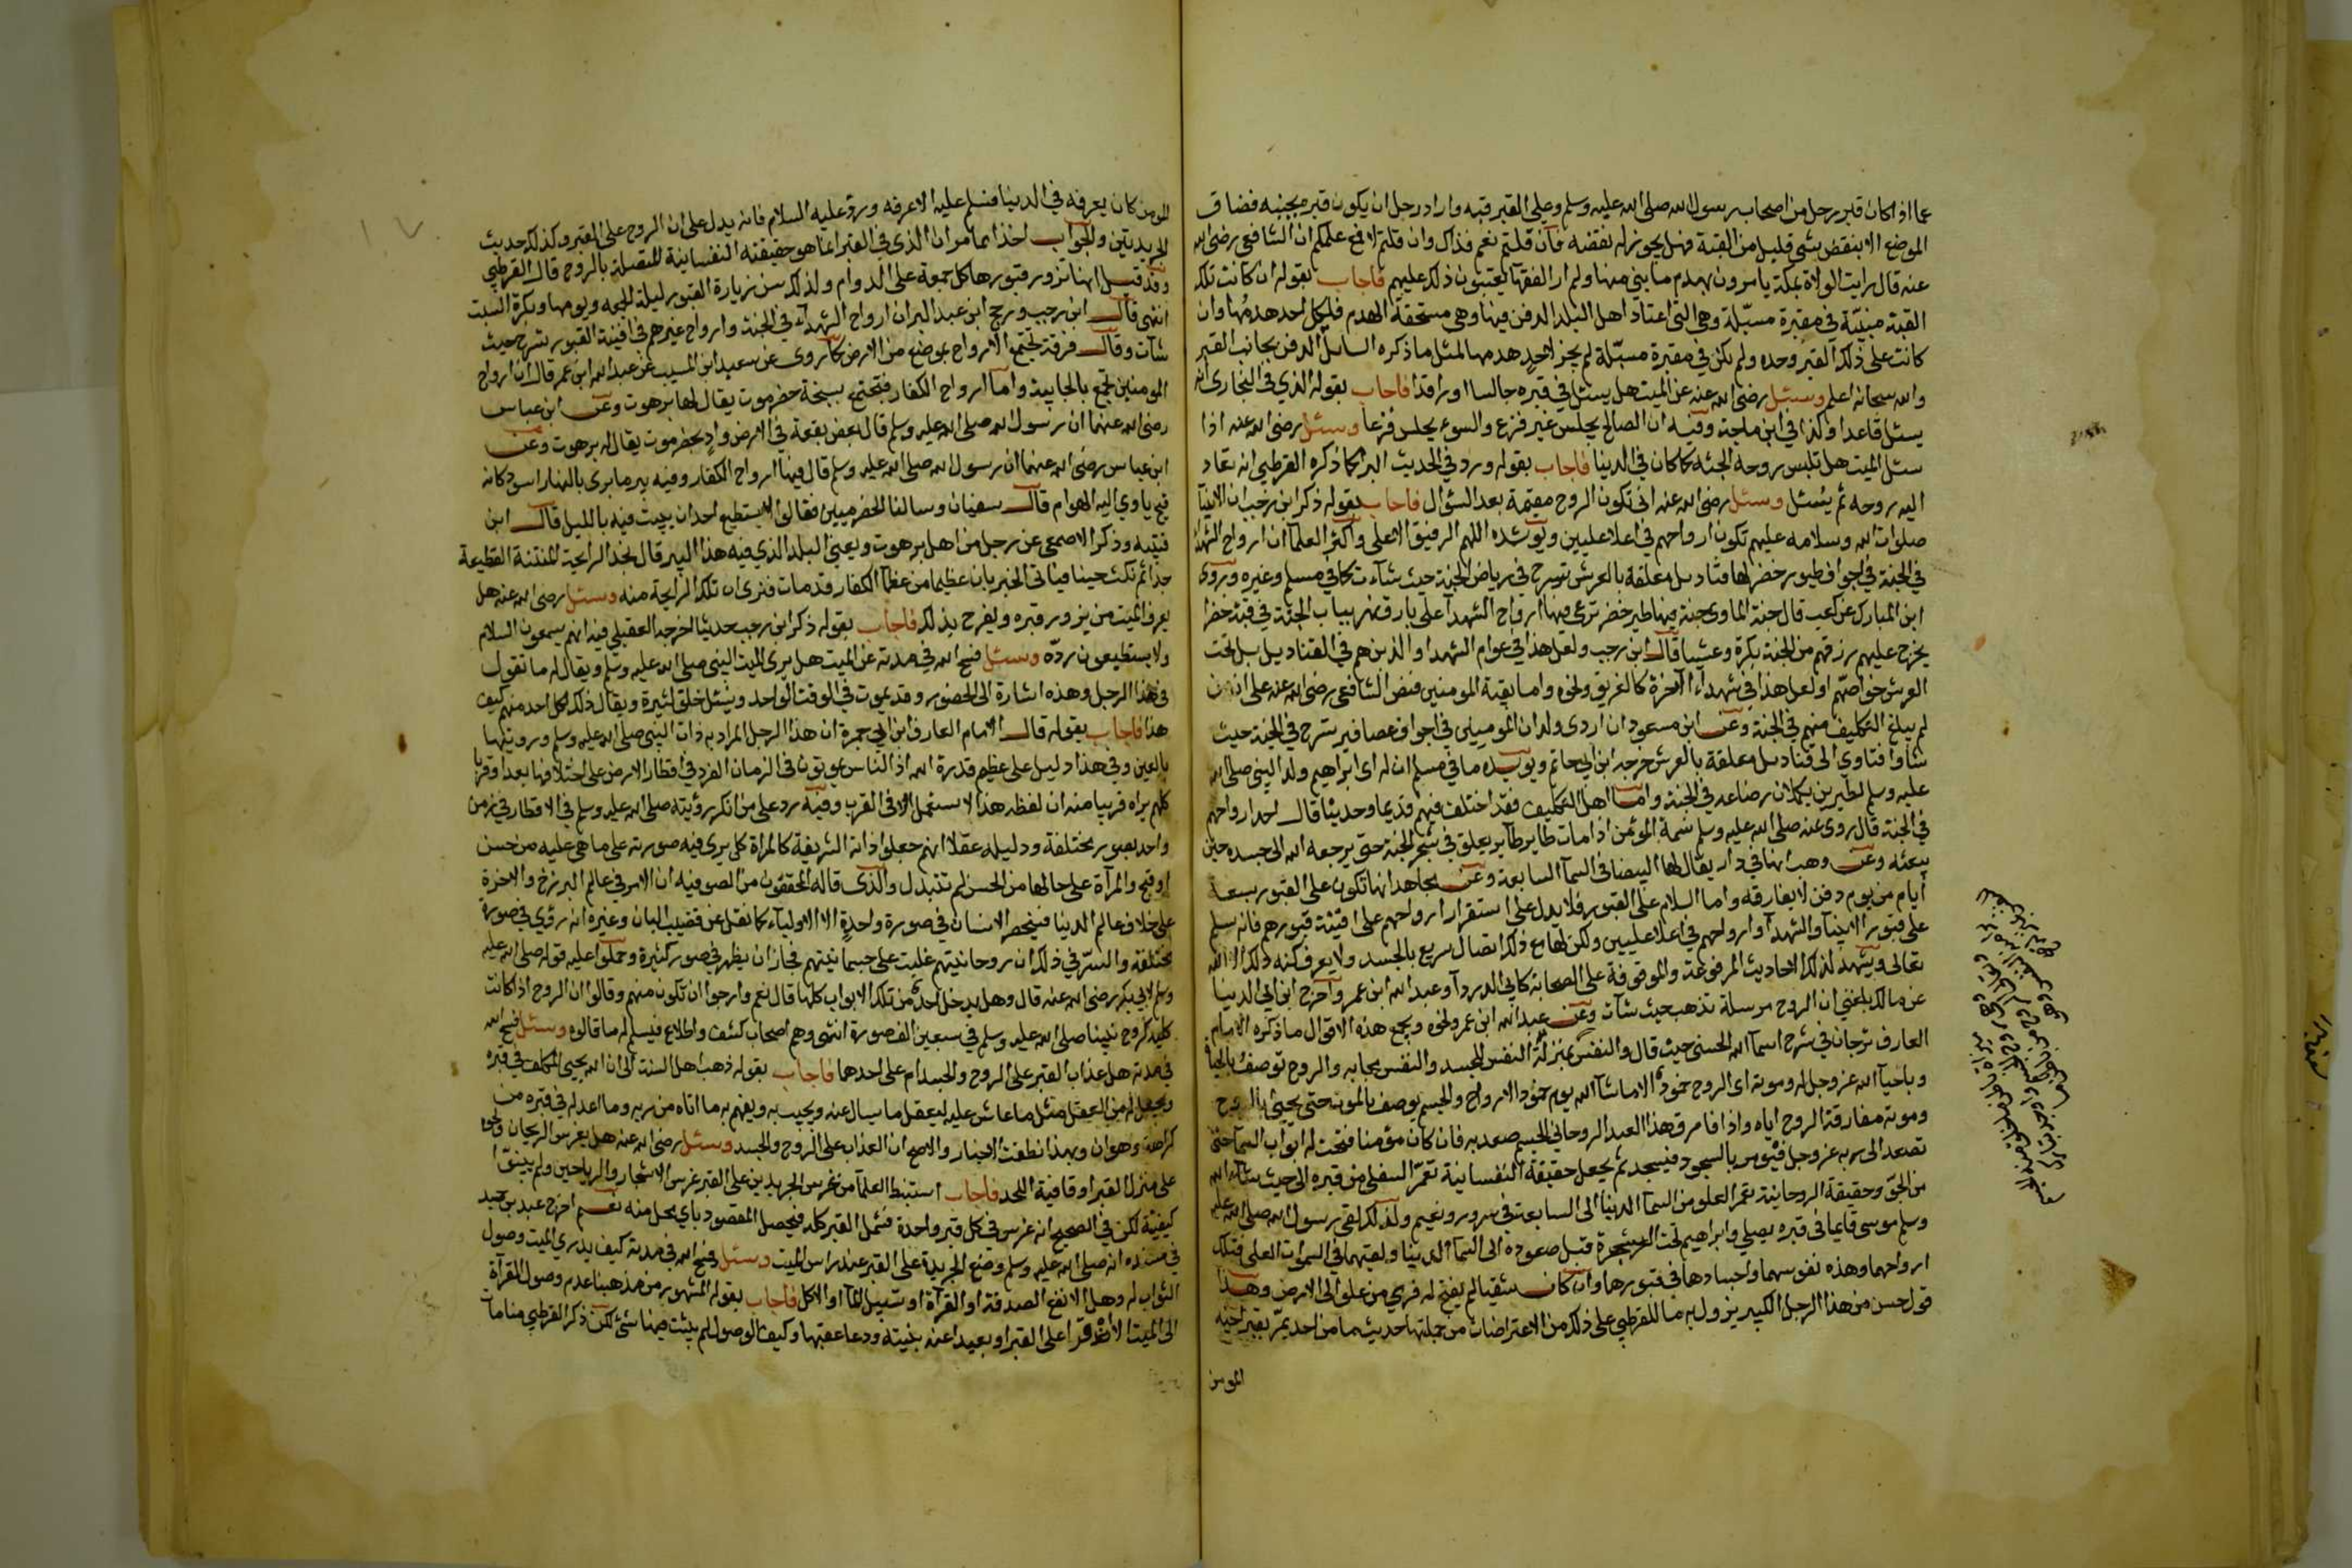 عما اذا كان قبر رجل من اصحاب رسول الله صلى الله عليه وسلم وعلى القبر قبة واراد رجل ان يكون قبره بجنبه فضاق
الموضع الا بنقض شي قليل من القبة فهل يجوز له نقضه فان قلتم نعم فذاك وان قلتم لا فع علمكم ان الشافعي رضي الله
عنه قال رايت الولاة بمكة يامرون بهدم ما بني منها ولم ار الفقها يعيبون ذلك عليهم فاجاب بقوله ان كانت تلك
القبة مبنية في مقبرة مسبلة وهي التي اعتاد اهل البلد الدفن فيها وهي مستحقة الهدم فلكل احد هدمها وان
كانت على ذلك القبر وحده ولم يكن في مقبرة مسبلة لم يجز لاحد هدمها لمثل ما ذكره السايل الدفن بجانب القبر
والله سبحانه اعلم وسئل رضي الله عنه عن الميت هل يسئل في قبره جالسا او راقدا فاجاب بقوله الذي في البخاري انه
يسئل قاعدا وكذا في ابن ماجة وفيه ان الصالح يجلس غير فزع والسوء يجلس فزعا وسئل رضي الله عنه اذا
سئل الميت هل تلبس روحه الجثة كما كان في الدنيا فاجاب بقوله ورد في الحديث البرا كما ذكره القرطبي انه تعاد
اليه روحه ثم يسئل وسئل رضي الله عنه انى تكون الروح مقيمة بعد السؤال فاجاب بقوله ذكر ابن رجب ان الانبيا
صلوات الله وسلامه عليهم تكون ارواحهم في اعلا عليين ويويده اللهم الرفيق الاعلى واكثر العلما ان ارواح الشهدا
في الجنة في اجواف طيور خضر لها قناديل معلقة بالعرش تسرح في رياض الجنة حيث شآءت كما في مسلم وغيره وروى
ابن المبارك عن كعب قال جنة الماوى جنة فيها طير خضر ترعى فيها ارواح الشهدا على بارق نهر بباب الجنة في قبة خضرا
يخرج عليهم رزقهم من الجنة بكرة وعشيا قال ابن رجب ولعل هذا في عوام الشهدا والذين هم في القناديل بل تحت
العرش خواصهم او لعل هذا في شهداء الآخرة كالغريق ونحوه واما بقية المومنين فنص الشافعي رضي الله عنه على ان من
لم يبلغ التكليف منهم في الجنة وعن ابن مسعود ان ولدان المومنين في اجواف عصافير تسرح في الجنة حيث
شاوا فتاوي الى قناديل معلقة بالعرش خرجه ابن ابي حاتم ويويده ما في مسلم ان له اى ابراهيم ولد النبي صلى الله
عليه وسلم لظيرين يكملان رضاعه في الجنة واما اهل التكليف فقد اختلف فيهم قديما وحديثا قال احمد ارواحهم
في الجنة قال روى عنه صلى الله عليه وسلم نسمة المؤمن اذا مات طاير يعلق في شجر الجنة حتى يرجعه الله الى جسده حين
يبعثه وعن وهب انها في دار يقال لها البيضا في السمآ السابعة وعن مجاهد انها تكون على القبور سبعة
أيام من يوم دفن لا يفارقه واما السلام على القبور فلا يدل على استقرار ارواحهم على افنية قبورهم فانه يسلم
على قبور الانبيآ والشهدآ وارواحهم في اعلا عليين ولكن لها مع ذلك اتصال سريع بالجسد ولا يعرف كنه ذلك الا الله
تعالى ويشهد لذلك الاحاديث المرفوعة والموقوفة على الصحابة كابي الدردآ وعبد الله ابن عمر واخرج ابن ابي الدنيا
عن مالك بلغني ان الروح مرسلة تذهب حيث شآت وعن عبد الله ابن عمر ونحوه ويجمع هذه الاقوال ما ذكره الامام
العارف برجان في شرح اسمآ الله الحسنى حيث قال والنفس بمنزلة النفس للجسد والنفس بحابه والروح توصف بالحياة
وباحيآ الله عز وجل له وموته اى الروح خموده الا ما شآ الله يوم خمود الارواح والجسم يوصف بالموت حتى يحيى بالروح
وموته مفارقة الروح اياه واذا فارق هذا العبد الروحاني الجسم صعد به فان كان مؤمنا فتحت له ابواب السمآ حتى
تصعد الى ربه عز وجل فيومر بالسجود فيسجد ثم يجعل حقيقة النفسانية تعمر السفل من قبره الى حيث شآء الله
من الجو وحقيقة الروحانية تعمر العلو من السمآ الدنيا الى السابعة في سرور ونعيم ولذلك لقي رسول الله صلى الله عليه
وسلم موسى قايما في قبره يصلي وابراهيم تحت الشجرة قبل صعوده الى السمآ الدنيا ولقيهما في السموات العلى فتلك
ارواحهما وهذه نفوسهما واجسادها في قبورها وان كان شقيا لم يفتح له فرمي من علو الى الارض وهذا
قول حسن من هذا الرجل الكبير يزول به ما للقرطبي على ذلك من الاعتراضات من جملتها حديث ما من احد يمر بقبر اخيه
المومن
المومن كان يعرفه في الدنيا فسلم عليه الا عرفه ورد عليه السلام فانه يدل على ان الروح على القبر وكذلك حديث
الجريدتين والجواب اخذا مما مر ان الذى في القبر انما هو حقيقته النفسانية المتصلة بالروح قال القرطبي
وقد قيل انها تزور قبورها كل جمعة على الدوام ولذلك سن زيارة القبور ليلة الجمعة ويومها وبكرة السبت
انتهى قال ابن رجب ورجح ابن عبد البر ان ارواح الشهدآء في الجنة وارواح غيرهم في افنية القبور تسرح حيث
شآت وقال فرقة تجتمع الارواح بموضع من الارض كما روى عن سعيد ابن المسيب عن عبد الله ابن عمر قال ان ارواح
المومنين تجتمع بالجابية واما ارواح الكفار فتجتمع بسبخة حضرموت يقال لها برهوت وعن ابن عباس
رضي الله عنهما ان رسول الله صلى الله عليه وسلم قال بعض بقعة في الارض واد بحضرموت يقال له برهوت وعن
ابن عباس رضي الله عنهما ان رسول الله صلى الله عليه وسلم قال فيها ارواح الكفار وفيه بير ما يرى بالنهار اسود كانه
قيح ياوي اليه الهوام قال سفيان وسالنا الحضرميين فقالوا لا يستطيع احد ان يبيت فيه بالليل قال ابن
قتيبة وذكر الاصمعي عن رجل من اهل برهوت ويعني البلد الذي فيه هذا البير قال نجد الرايحة المنتنة الفظيعة
جدا ثم نمكث حينا فياتي الخبر بان عظيما من عظمآ الكفار قد مات فنرى ان تلك الرايحة منه وسئل رضي الله عنه هل
يعرف الميت من يزور قبره ويفرح بذلك فاجاب بقوله ذكر ابن رجب حديثا اخرجه العقيلي فيه انهم يسمعون السلام
ولا يستطيعون رده وسئل فسح الله في مدته عن الميت هل يرى الميت النبي صلى الله عليه وسلم ويقال له ما تقول
في هذا الرجل وهذه اشارة الى الحضور وقد يموت في الوقت الواحد ويسئل خلق كثيرة ويقال ذلك لكل احد منهم كيف
هذا فاجاب بقوله قال الامام العارف ابن ابي جمرة ان هذا الرجل المراد به ذات النبي صلى الله عليه وسلم ورويتها
بالعين وفي هذا دليل على عظيم قدرة الله اذ الناس يموتون في الزمان الفرد في اقطار الارض على اختلافها بعدا وقربا
كلهم يراه قريبا منه لان لفظه هذا لا يستعمل الا في القرب وفيه رد على من انكر رؤيته صلى الله عليه وسلم في الاقطار في زمن
واحد بصور مختلفة ودليله عقلا انهم جعلوا ذاته الشريفة كالمرآة كل يرى فيه صورته على ما هي عليه من حسن
او قبح والمرآة على حالها من الحسن لم تتبدل والذى قاله المحققون من الصوفية ان الامر في عالم البرزخ والاخرة
على خلاف عالم الدنيا فينحصر الانسان في صورة واحدة الا الاولياء كما نقل عن قضيب البان وغيره انه رؤي في صورة
مختلفة والسر في ذلك ان روحانيتهم غلبت على جسمانيتهم فجاز ان يظهر في صور كثيرة وحملوا عليه قوله صلى الله عليه
وسلم لابي بكر رضي الله عنه قال وهل يدخل احد من تلك الابواب كلها قال نعم وارجوا ان تكون منهم وقالوا ان الروح اذا كانت
كلية كروح نبينا صلى الله عليه وسلم في سبعين الف صورة انتهى وهم اصحاب كشف واطلاع فيسلم له ما قالوه وسئل فسح الله
في مدته هل عذاب القبر على الروح والجسد ام على احدهما فاجاب بقوله ذهب اهل السنة الى ان الله يحيى المكلف في قبره
ويجعل له من العقل مثل ما عاش عليه ليعقل ما يسال عنه ويجيب به ويفهم به ما اتاه من ربه وما اعد له في قبره من
كرامة وهوان وبهذا نطقت الاخبار والاصح ان العذاب على الروح والجسد وسئل رضي الله عنه هل يغرس الريحان ونحوه
على منزل القبر او قافية اللحد فاجاب استنبط العلمآ من غرس الجريدتين على القبر غرس الاشجار والرياحين ولم يبينوا
كيفيته لكن في الصحيح انه غرس في كل قبر واحدة فشمل القبر كله فيحصل المقصود باي محل منه نعم اخرج عبد بن حميد
في مسنده انه صلى الله عليه وسلم وضع الجريدة على القبر عند راس الميت وسئل فسح الله في مدته كيف يدري الميت وصول
الثواب له وهل الانفع الصدقة او القرآة او تسبيل المآ او الاكل فاجاب بقوله المشهور من مذهبنا عدم وصول القرآة
الى الميت الا ان قرا على القبر او بعيدا عنه بنيته ودعا عقبها وكيف الوصول لم يثبت فيها شئ لكن ذكر القرطبي منامات